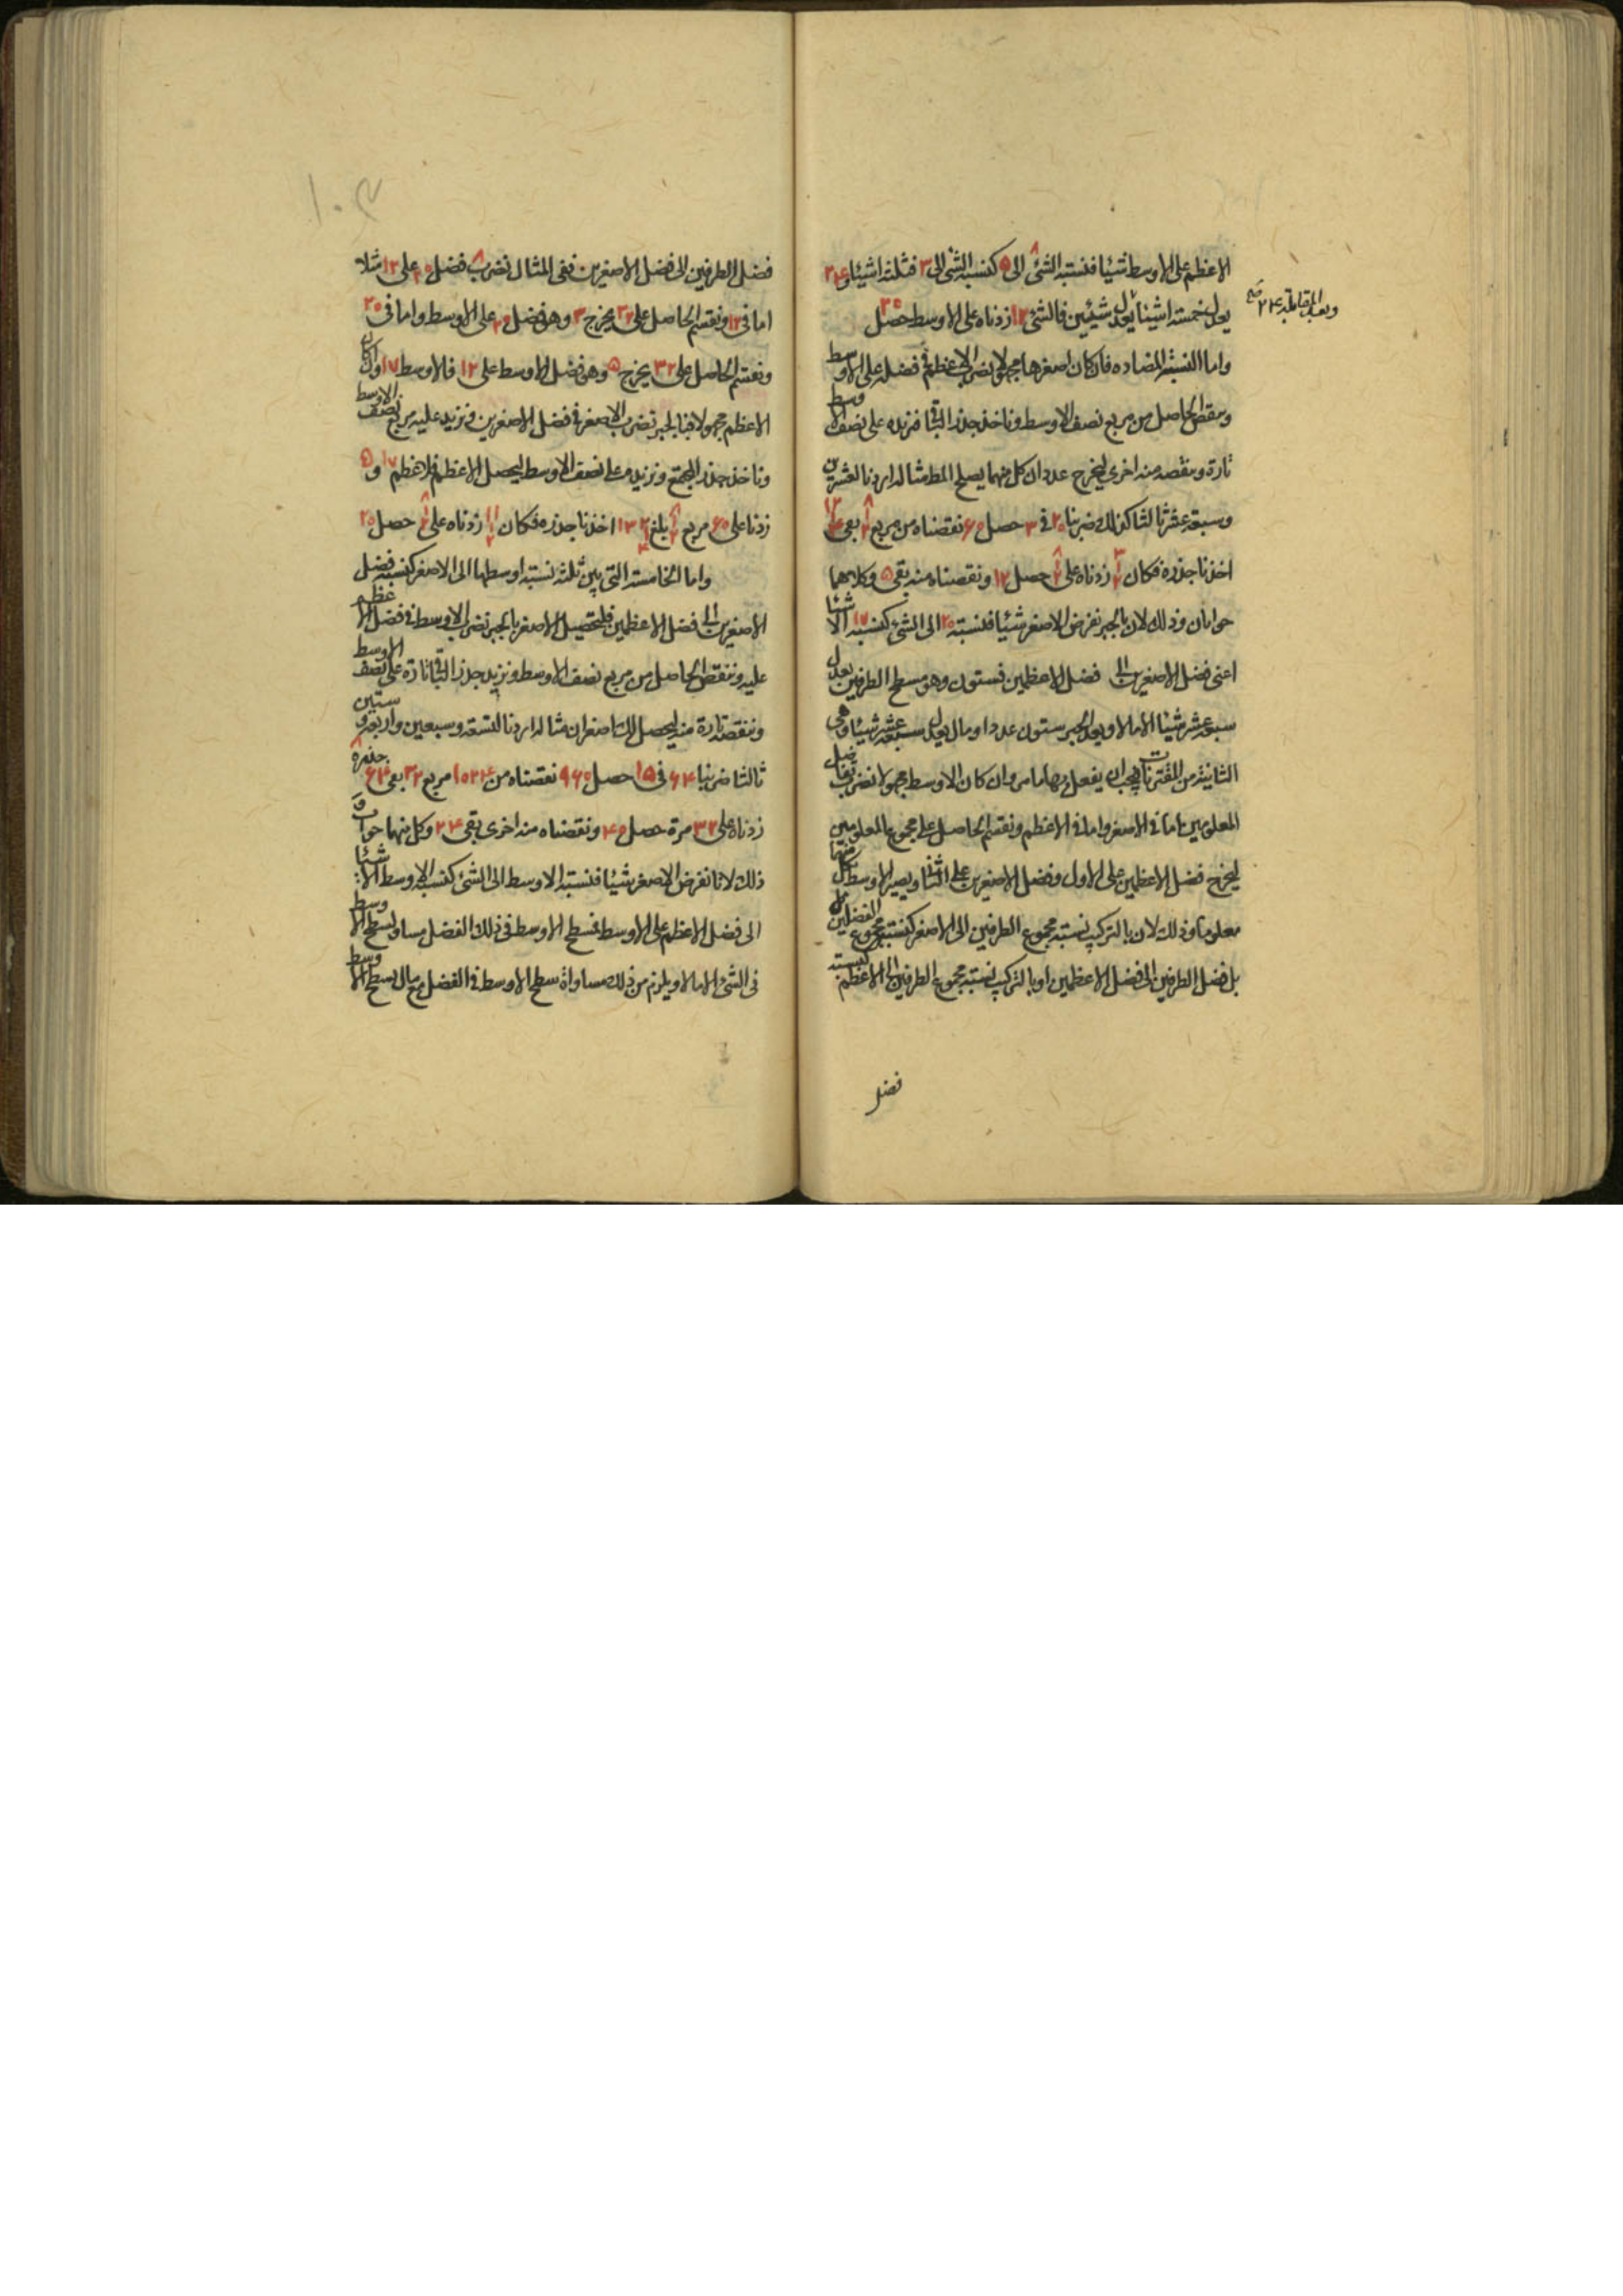 الاعظم على الاوسط شيئا فنسبة الشئ ٨ الى ٥ كنسبة الشئ الى ٣ فثلثة اشياء و ٢٤
يعدل خمسة اشياء يعدل شيئين فالشئ ١٢ زدناه على الاوسط حصل ٢٥
وبعد المقابلة ٢٤ صح
واما النسبة المضاده فان كان اصغرها مجهولا نضرب الاعظم فى فضله على الاوسط
وينقص الحاصل من مربع نصف الاوسط وناخذ جذر الباقى فنزيده على نصف الاوسط
تارة وينقصه منه اخرى ليخرج عددان كل منهما يصلح المط مثاله اردنا لعشرين
وسبعة عشر ثالثا كذلك ضربنا ٢٥ فى ٣ حصل ٦٥ نقصناه من مربع بقى
اخذنا جذره فكان زدناه على حصل ١٢ ونقصناه منه بقى ٥ وكلاهما
جوابان وذلك لان بالجبر نفرض الاصغر شيئا فنسبة ٢٥ الى الشئ كنسبة ١٧ الا شيئا
اعنى فضل الاصغرين الى فضل الاعظمين فستون وهو مسطح الطرفين يعدل
سبعة عشر شيئا الا مالا وبعد الجبر ستون عددا ومال يعدل سبعة عشر شيئا وهى
الثانية من المقترنات فيجب ان يفعل بها ما مر وان كان الاوسط مجهولا نضرب تفاضل
المعلومين اما فى الاصغر واما فى الاعظم ونقسم الحاصل على مجموع المعلومين
ليخرج فضل الاعظمين على الاول وفضل الاصغرين على الثانى ويصير الاوسط كل منهما
معلوما وذلك لان بالتركيب نسبة مجموع الطرفين الى الاصغر كنسبة مجموع الفضلين
بل فضل الطرفين الى فضل الاعظمين او بالتركيب نسبة مجموع الطرفين الى الاعظم كنسبة
فضل
فضل الطرفين الى فضل الاصغرين ففى المثال نضرب ٨ فضل ٢٥ على ١٢ مثلا
اما فى ١٢ ونقسم الحاصل على ٣٢ يخرج ٣ وهو فضل ٢٥ على الاوسط واما فى ٢٥
ونقسم الحاصل على ٣٢ يخرج ٥ وهو فضل الاوسط على ١٢ فالاوسط ١٧ وان كان
الاعظم مجهولا فبالجبر نضرب الاصغر فى فضل الاصغرين ونزيد عليه مربع نصف الاوسط
وناخذ جذر المجتمع ونزيده على نصف الاوسط ليحصل الاعظم فلاعظم ١٧ و ٥
زدنا على ٦٥ مربع بلغ ١٣٢ اخذنا جذره فكان زدناه على حصل ٢٥
واما الخامسة التى بين ثلثة نسبة اوسطها الى الاصغر كنسبة فضل
الاصغرين الى فضل الاعظمين فلتحصيل الاصغر بالجبر نضرب الاوسط فى فضل الاعظم
عليه وننقص الحاصل من مربع نصف الاوسط ونزيد جذر الباقى تارة على نصف الاوسط
وننقصه تارة منه ليحصل اصغران مثاله اردنا لتسعة وسبعين واربعة وستين
ثالثا ضربنا ٦٤ فى ١٥ حصل ٩٦٥ نقصناه من ١٥٢٤ مربع ٣٢ بقى ٦٤ جذره ٨
زدناه على ٣٢ مرة حصل ٤٥ ونقصناه منه اخرى بقى ٢٤ وكل منهما جواب و
ذلك لانا نفرض الاصغر شيئا فنسبة الاوسط الى الشئ كنسبة الاوسط الا شيئا
الى فضل الاعظم على الاوسط فسطح الاوسط فى ذلك الفضل مساو لسطح الاوسط
فى الشئ الا مالا ويلزم من ذلك مساواة سطح الاوسط فى الفضل مع مال لسطح الاوسط